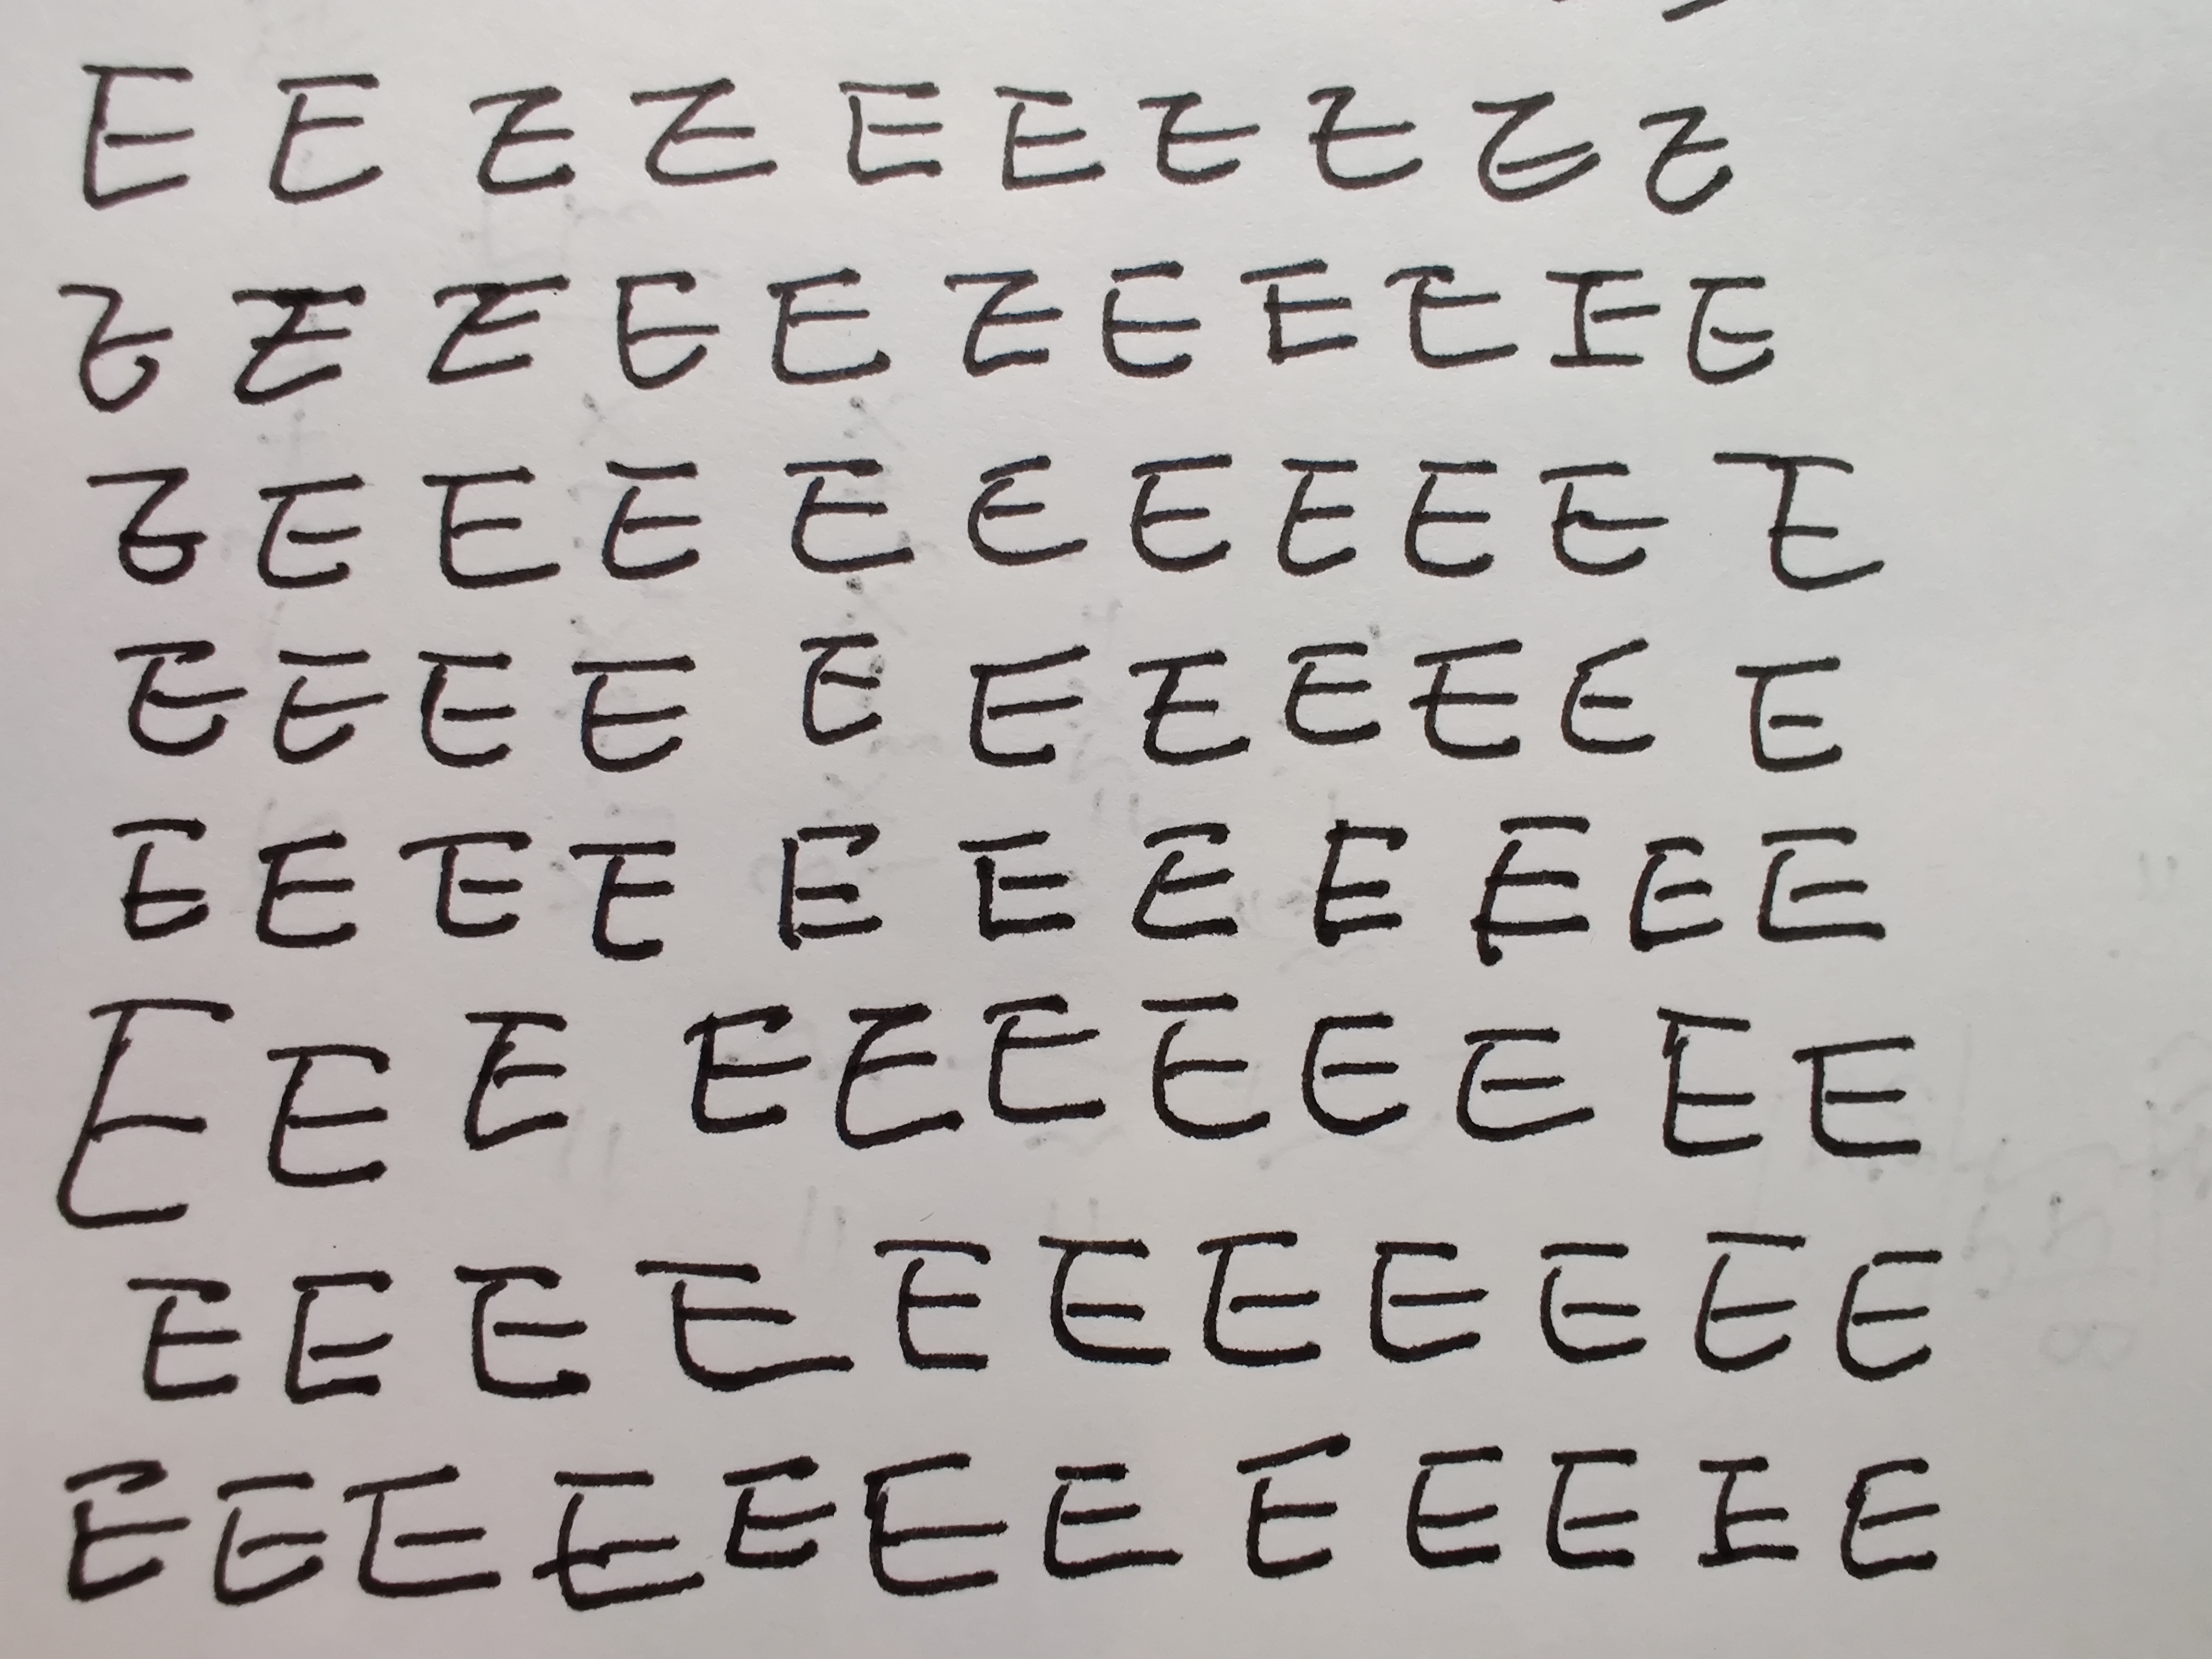 E E E E E E E E E E
E E E E E E E E E E E
E E E E E E E E E E E
E E E E E E E E E E E
E E E E E E E E E E E
E E E E E E E E E E E
E E E E E E E E E E E
E E E E E E E E E E E E